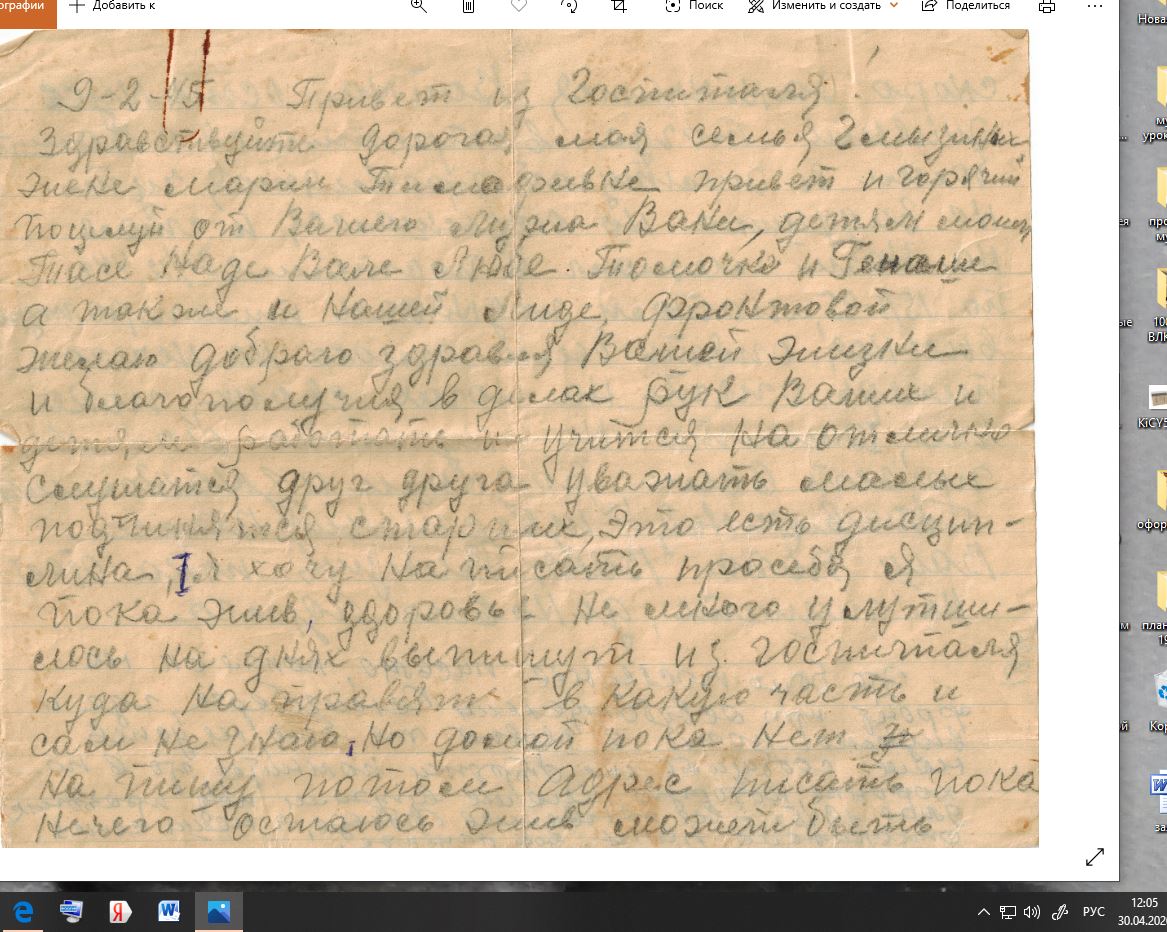 ографии + Добавить к Поиск Изменить и создать Поделиться
Нова
9-2-45 Привет из Госпиталя!
Здравствуйти дорогая моя семья
жене Марии Тимофивне привет и горячий
поцелуй от Вашего мужа Вани, детям моим
Тасе Наде Вале Любе Томочке и Генаше
а также и Нашей Лиде, фронтовой
желаю доброго здравия Вашей жизни
и благополучия в делах рук Ваших и
детям работать и учится На отлично
слушатся друг друга уважать малых
подчинятся старших, Это есть дисцип-
лина, Я хочу Написать просебя я
пока жив, здоровье не много улутши-
лось на днях выпишут из госпиталя
куда На правят в какую часть и
сам Не знаю, Но домой пока Нет
На пишу потом Адрес писать пока
Нечего остаюсь жив может быть
му
уро
про
му
100
ВЛК
ые
KiCY5
офор
м
план
19
й
Кор
за
РУС
12:05
30.04.202